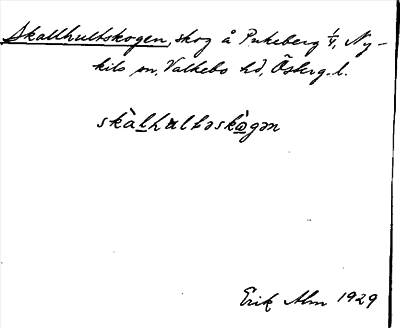 Skallhultskogen, skog å Pukeberg 1/4, Ny-
kils sn, Valkebo hd, Österg. l.
skàlhultəskògən
Erik Alm 1929